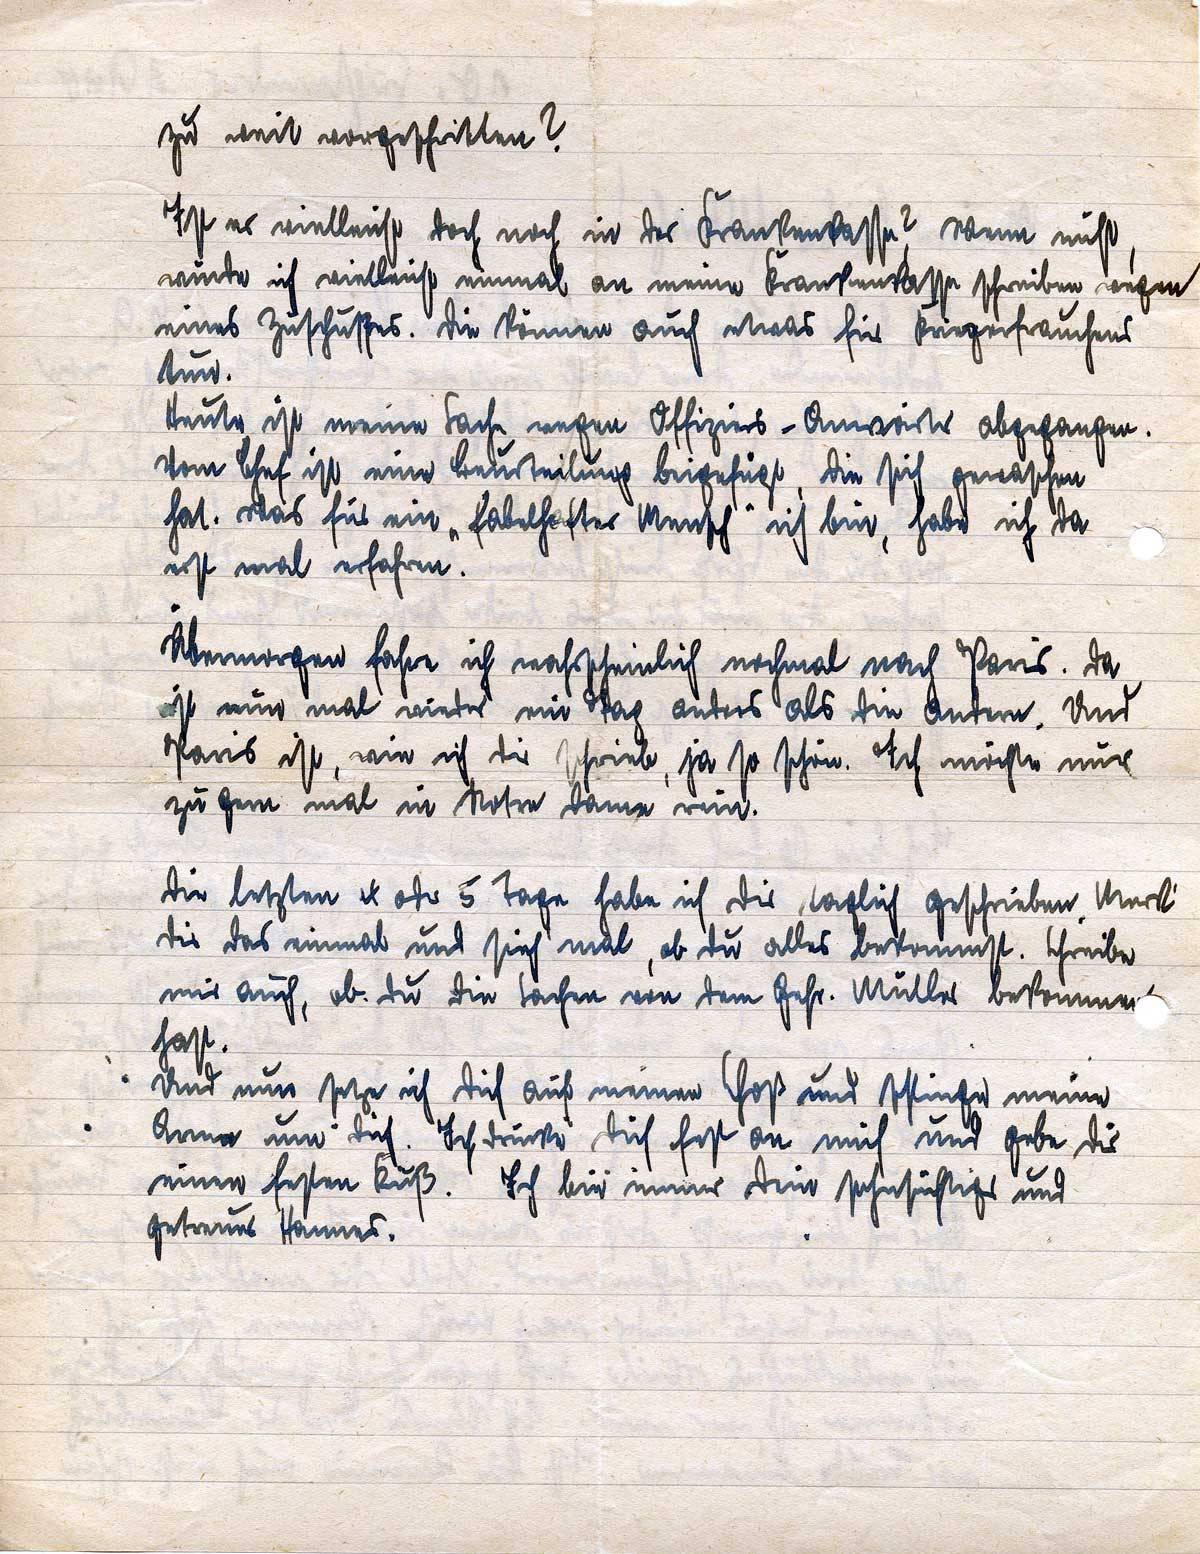 zu weit vorgeschritten?
Ist er vielleicht doch noch in der Krankenkasse? Wenn nicht,
würde ich vielleicht einmal an meine Krankenkasse schreiben wegen
eines Zuschußes. Die können auch etwas für Kriegerfrauchens
tun.
Heute ist meine Sache wegen Offiziers-Anwärter abgegangen.
Vom Chef ist eine Beurteilung beigefügt, die sich gewaschen
hat. Was für ein „fabelhafter Mensch" ich bin, habe ich da
erst mal erfahren.
Übermorgen fahre ich wahrscheinlich nochmal nach Paris. Da
ist nun mal wieder ein Tag anders als die andern. Und
Paris ist, wie ich dir schrieb, ja so schön. Ich möchte nur
zu gern mal in Notre Dame rein.
Die letzten 4 oder 5 Tage habe ich dir täglich geschrieben. Merk'
dir das einmal und sieh mal, ob du alles bekommst. Schreibe
mir auch, ob du die Sachen von dem Gefr. Müller bekommen
hast.
Und nun setze ich dich auf meinen Schoß und schlinge meine
Arme um dich. Ich drücke dich fest an mich und gebe dir
einen festen Kuß. Ich bin immer dein sehnsüchtiger und
getreuer Hannes.